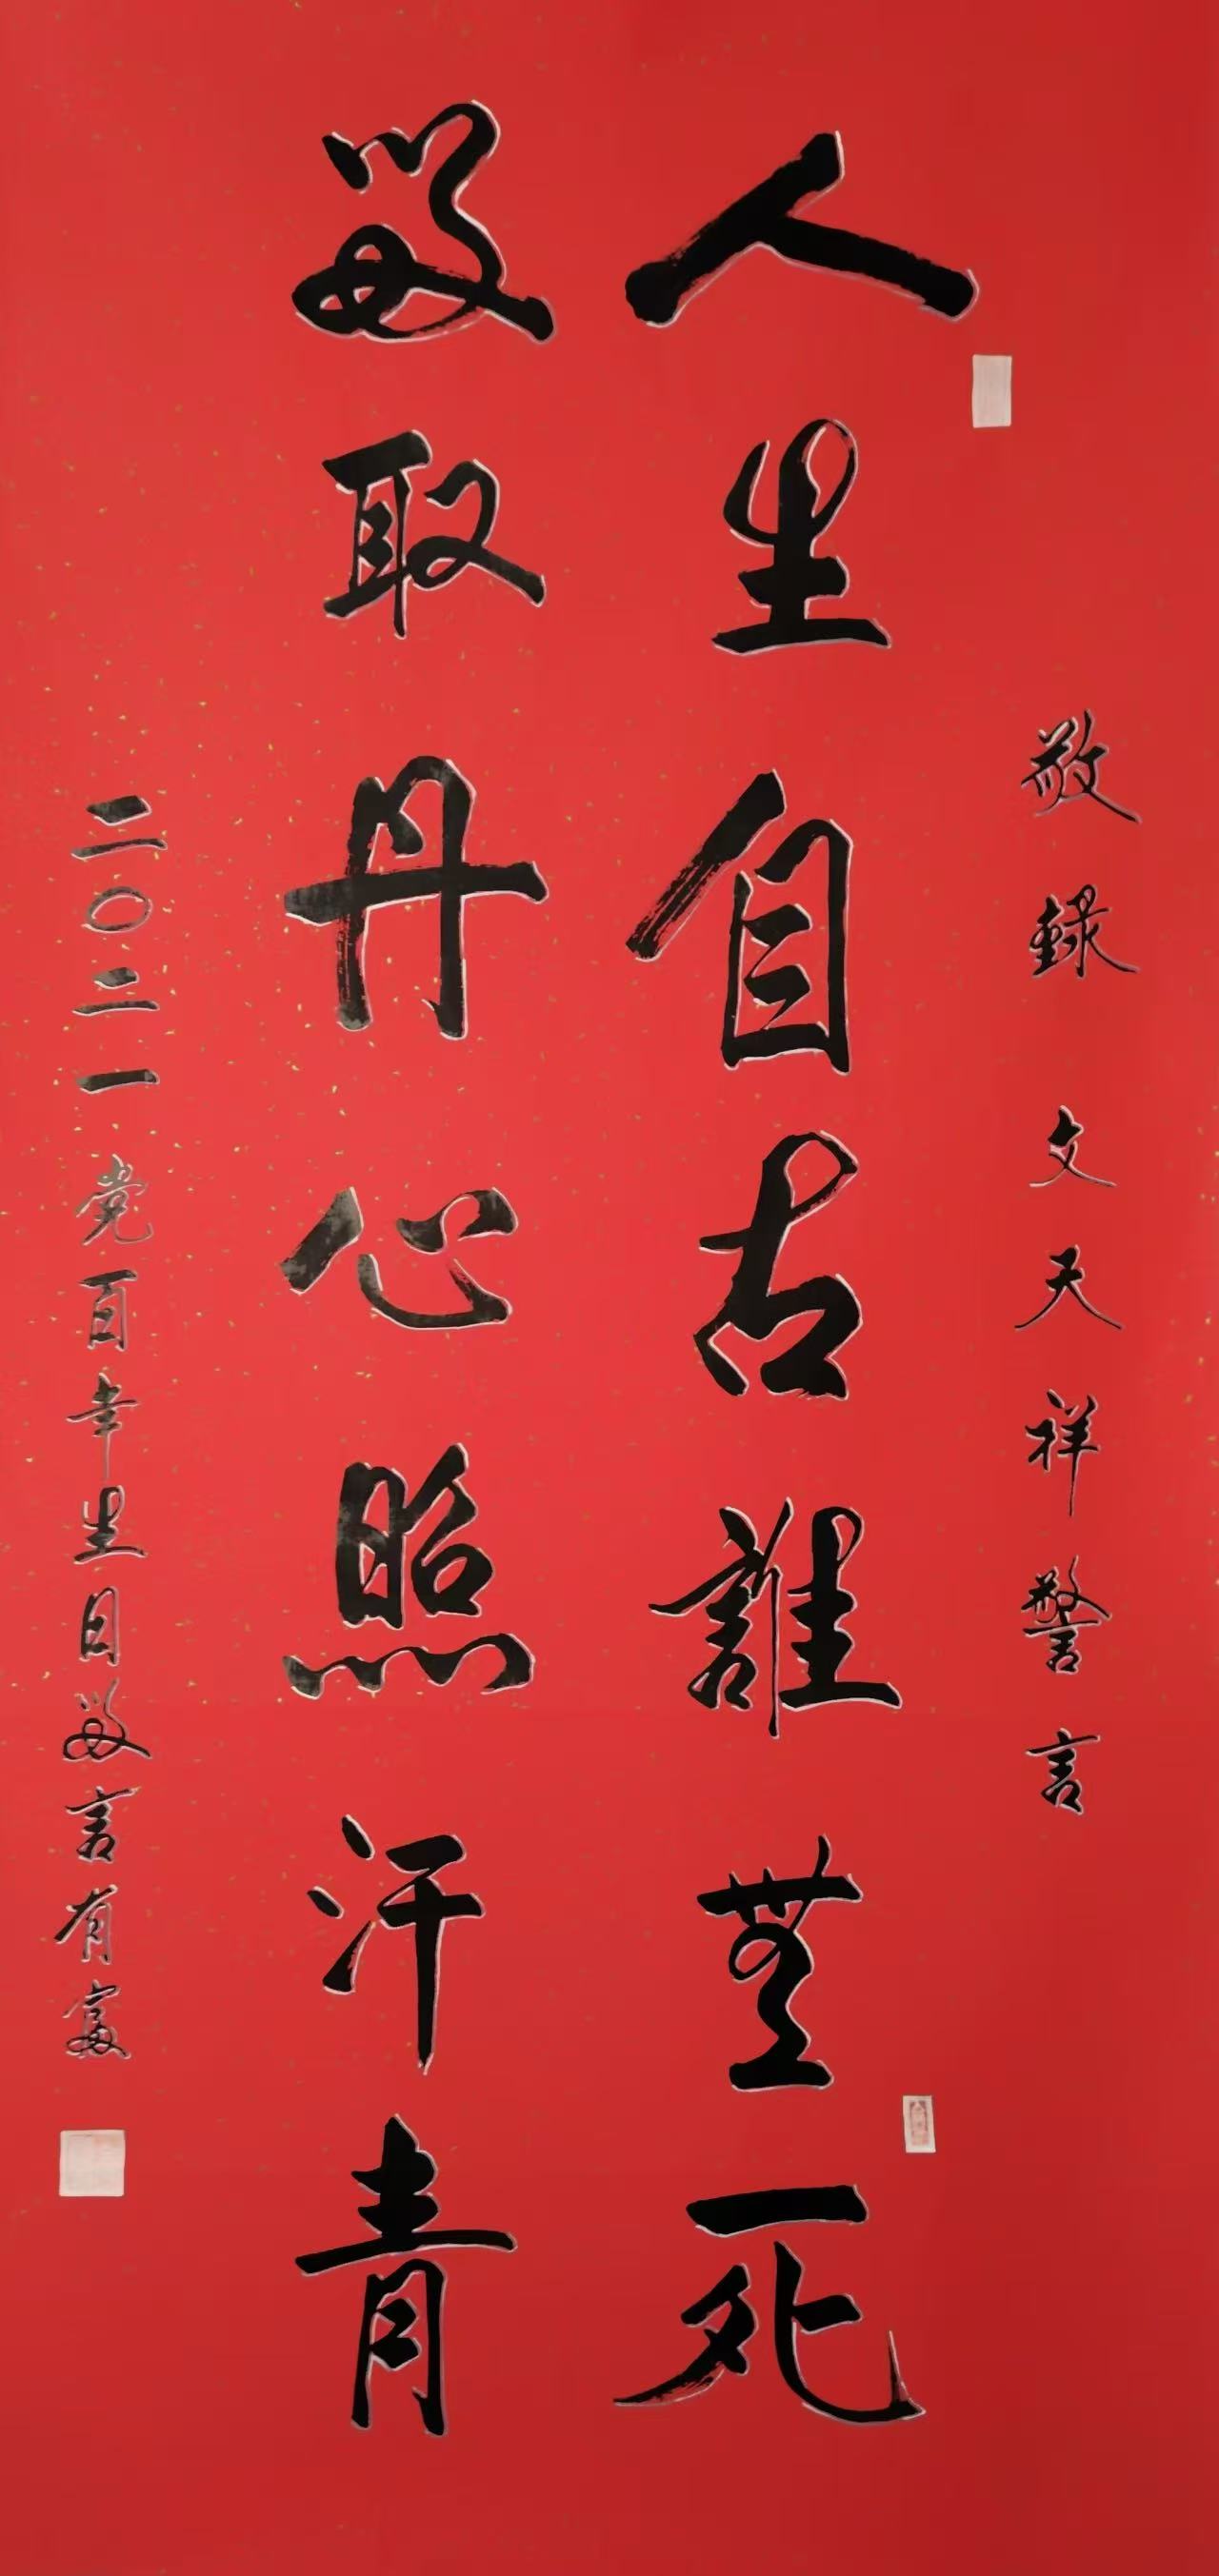 敬錄 文天祥警言
人生自古誰無死
留取丹心照汗青
二〇二一党百年生日留言有